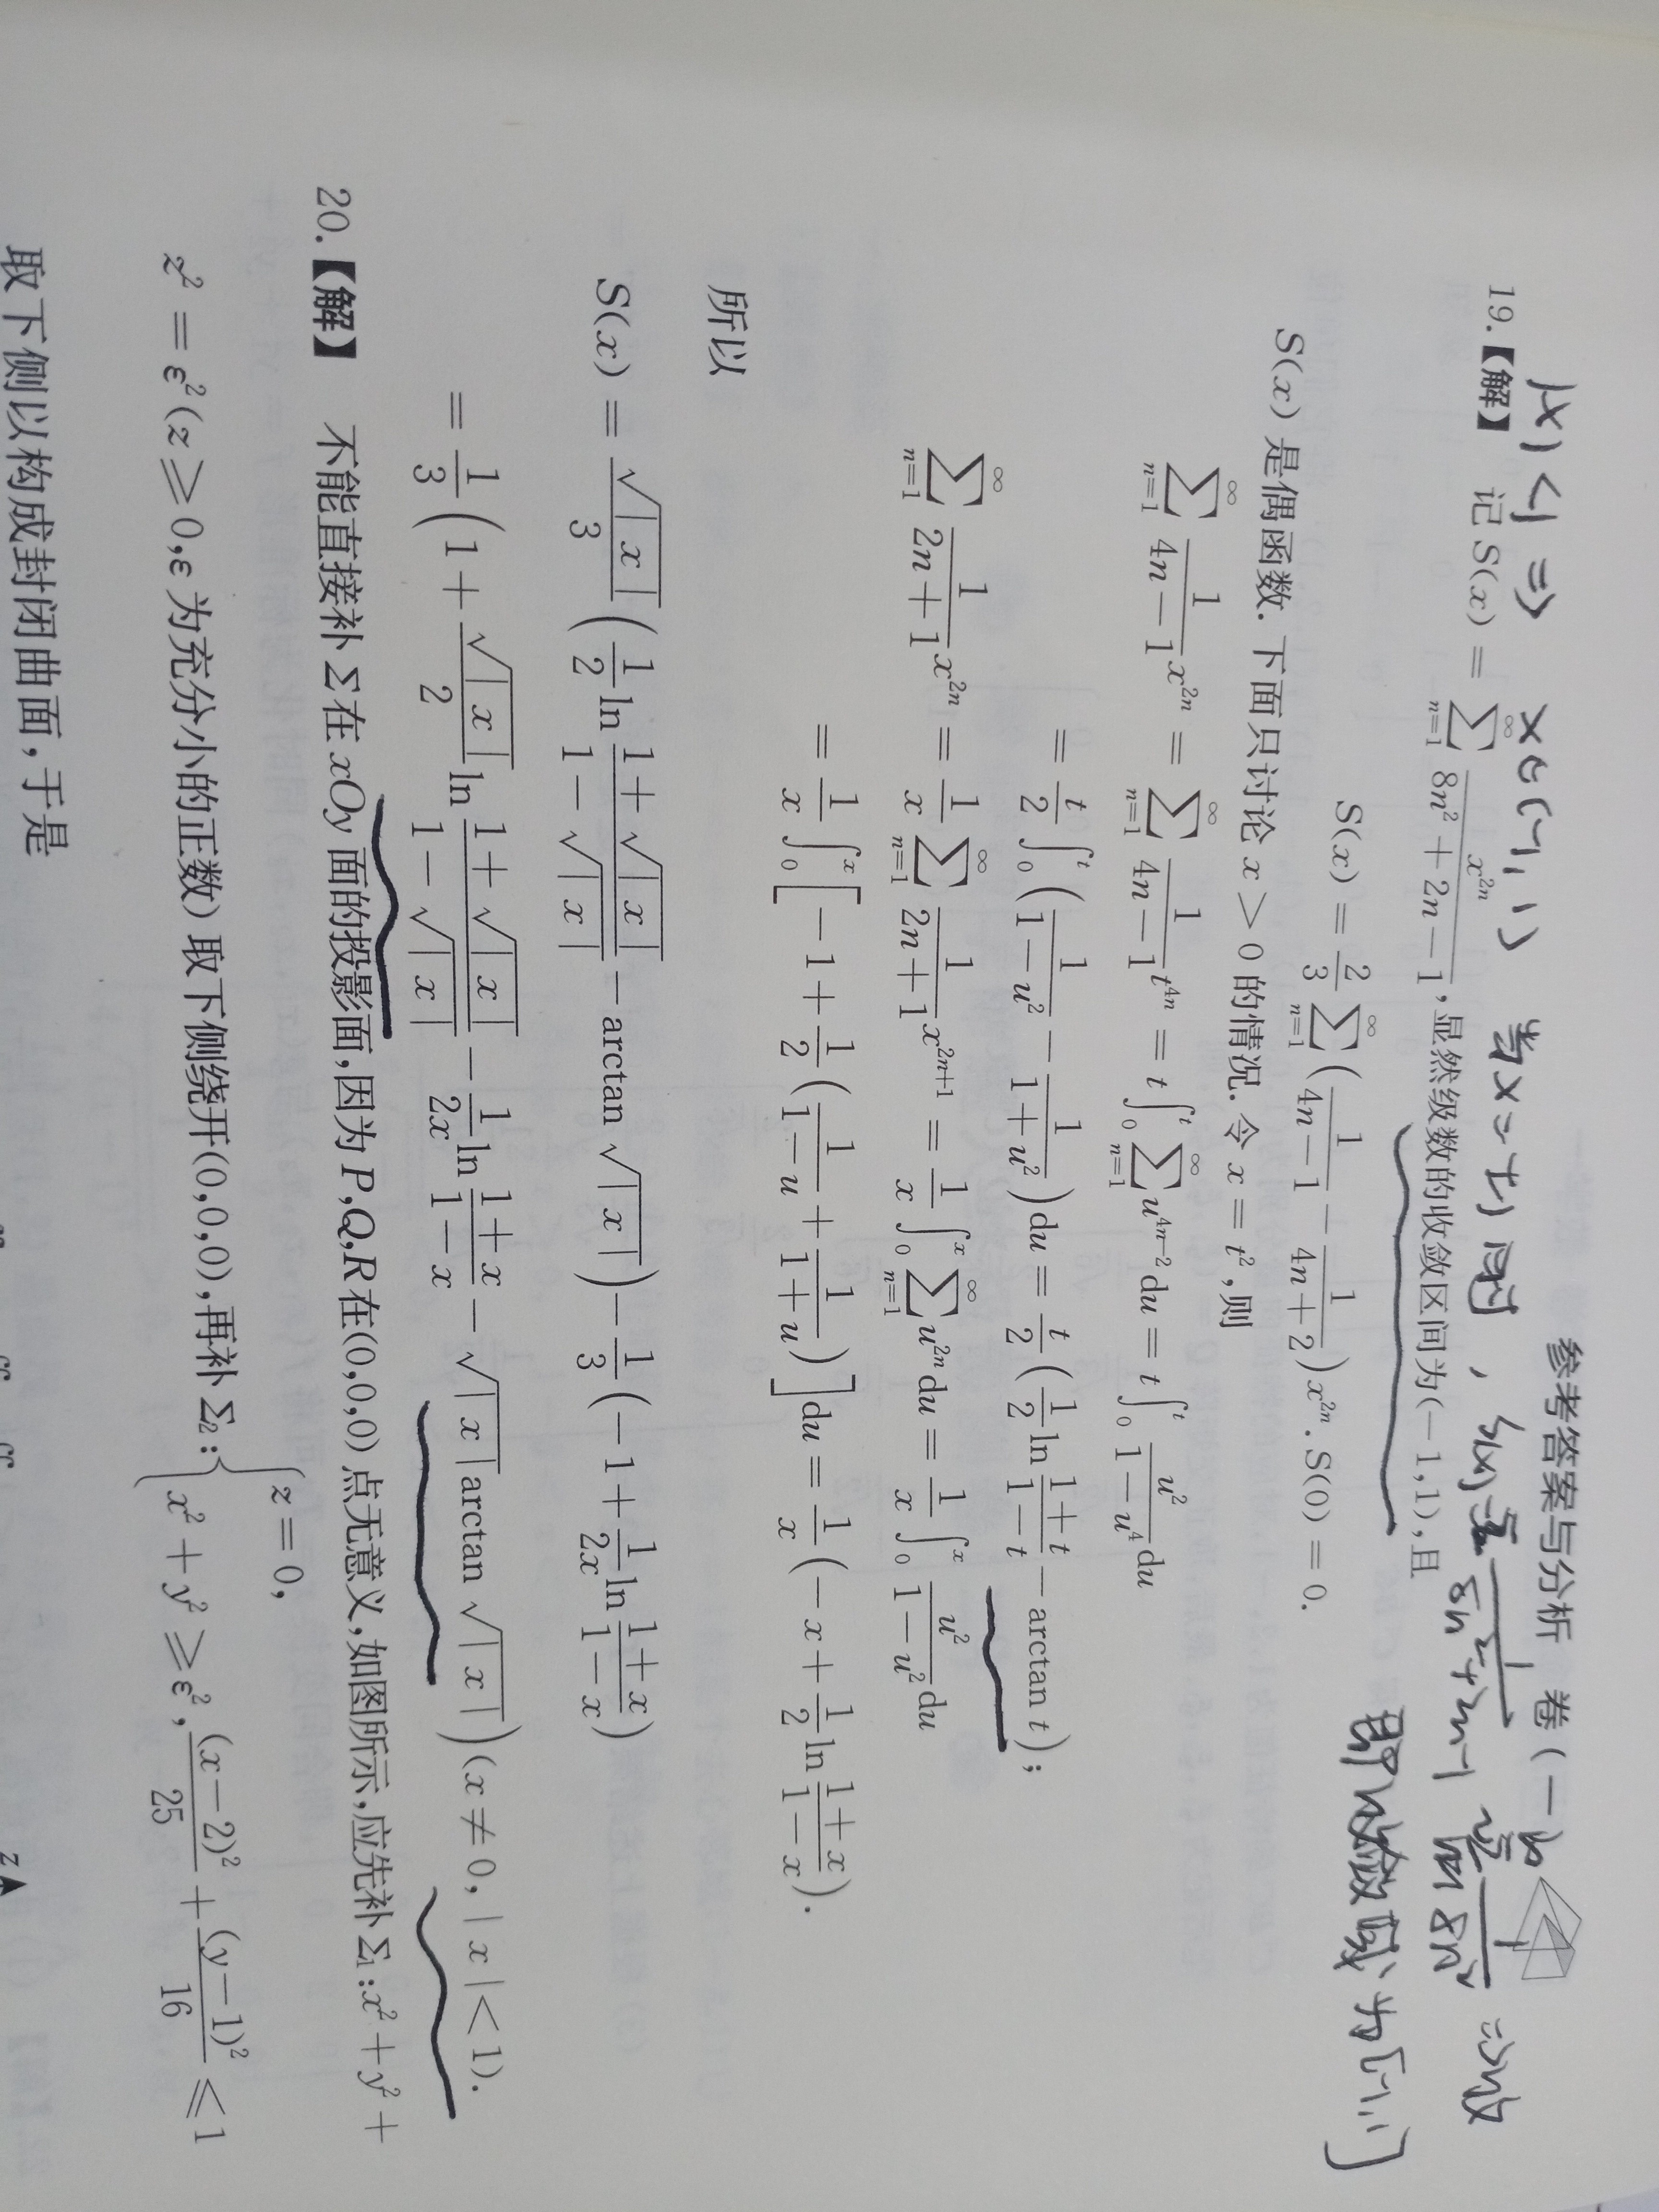 参考答案与分析 卷(一)
|x|<1 ⇒ x∈(-1,1) 当x=±1时, S(x)=∑1/(8n²+2n-1) 1/(8n²) ⇒收
即收敛域为[-1,1]
19.【解】 记 S(x) = ∑_{n=1}^{∞} x^{2n}/(8n²+2n-1),显然级数的收敛区间为(-1,1),且
S(x) = 2/3 ∑_{n=1}^{∞} (1/(4n-1) - 1/(4n+2)) x^{2n}. S(0) = 0.
S(x) 是偶函数. 下面只讨论 x > 0 的情况. 令 x = t²,则
∑_{n=1}^{∞} 1/(4n-1) x^{2n} = ∑_{n=1}^{∞} 1/(4n-1) t^{4n} = t∫_0^t ∑_{n=1}^{∞} u^{4n-2} du = t∫_0^t u²/(1-u⁴) du
= t/2 ∫_0^t (1/(1-u²) - 1/(1+u²)) du = t/2 (1/2 ln (1+t)/(1-t) - arctan t);
∑_{n=1}^{∞} 1/(2n+1) x^{2n} = 1/x ∑_{n=1}^{∞} 1/(2n+1) x^{2n+1} = 1/x ∫_0^x ∑_{n=1}^{∞} u^{2n} du = 1/x ∫_0^x u²/(1-u²) du
= 1/x ∫_0^x [-1 + 1/2 (1/(1-u) + 1/(1+u))] du = 1/x (-x + 1/2 ln (1+x)/(1-x)).
所以
S(x) = √|x|/3 (1/2 ln (1+√|x|)/(1-√|x|) - arctan √|x|) - 1/3 (-1 + 1/(2x) ln (1+x)/(1-x))
= 1/3 (1 + √|x|/2 ln (1+√|x|)/(1-√|x|) - 1/(2x) ln (1+x)/(1-x) - √|x| arctan √|x|) (x ≠ 0, |x| < 1).
20.【解】 不能直接补 Σ 在 xOy 面的投影面,因为 P,Q,R 在(0,0,0) 点无意义,如图所示,应先补 Σ₁:x² + y² +
z² = ε²(z ⩾ 0,ε 为充分小的正数) 取下侧绕开(0,0,0),再补 Σ₂: { z = 0, x² + y² ⩾ ε², (x-2)²/25 + (y-1)²/16 ⩽ 1
取下侧以构成封闭曲面,于是
z